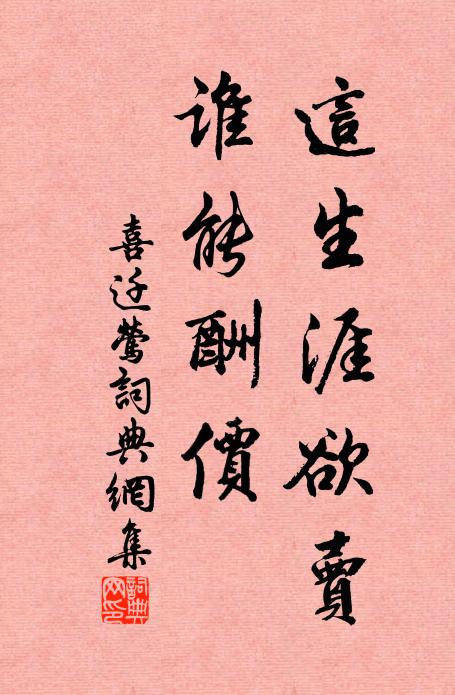 這生涯欲賣
誰能酬價
喜迁鶯詞典網集
詞典
网印